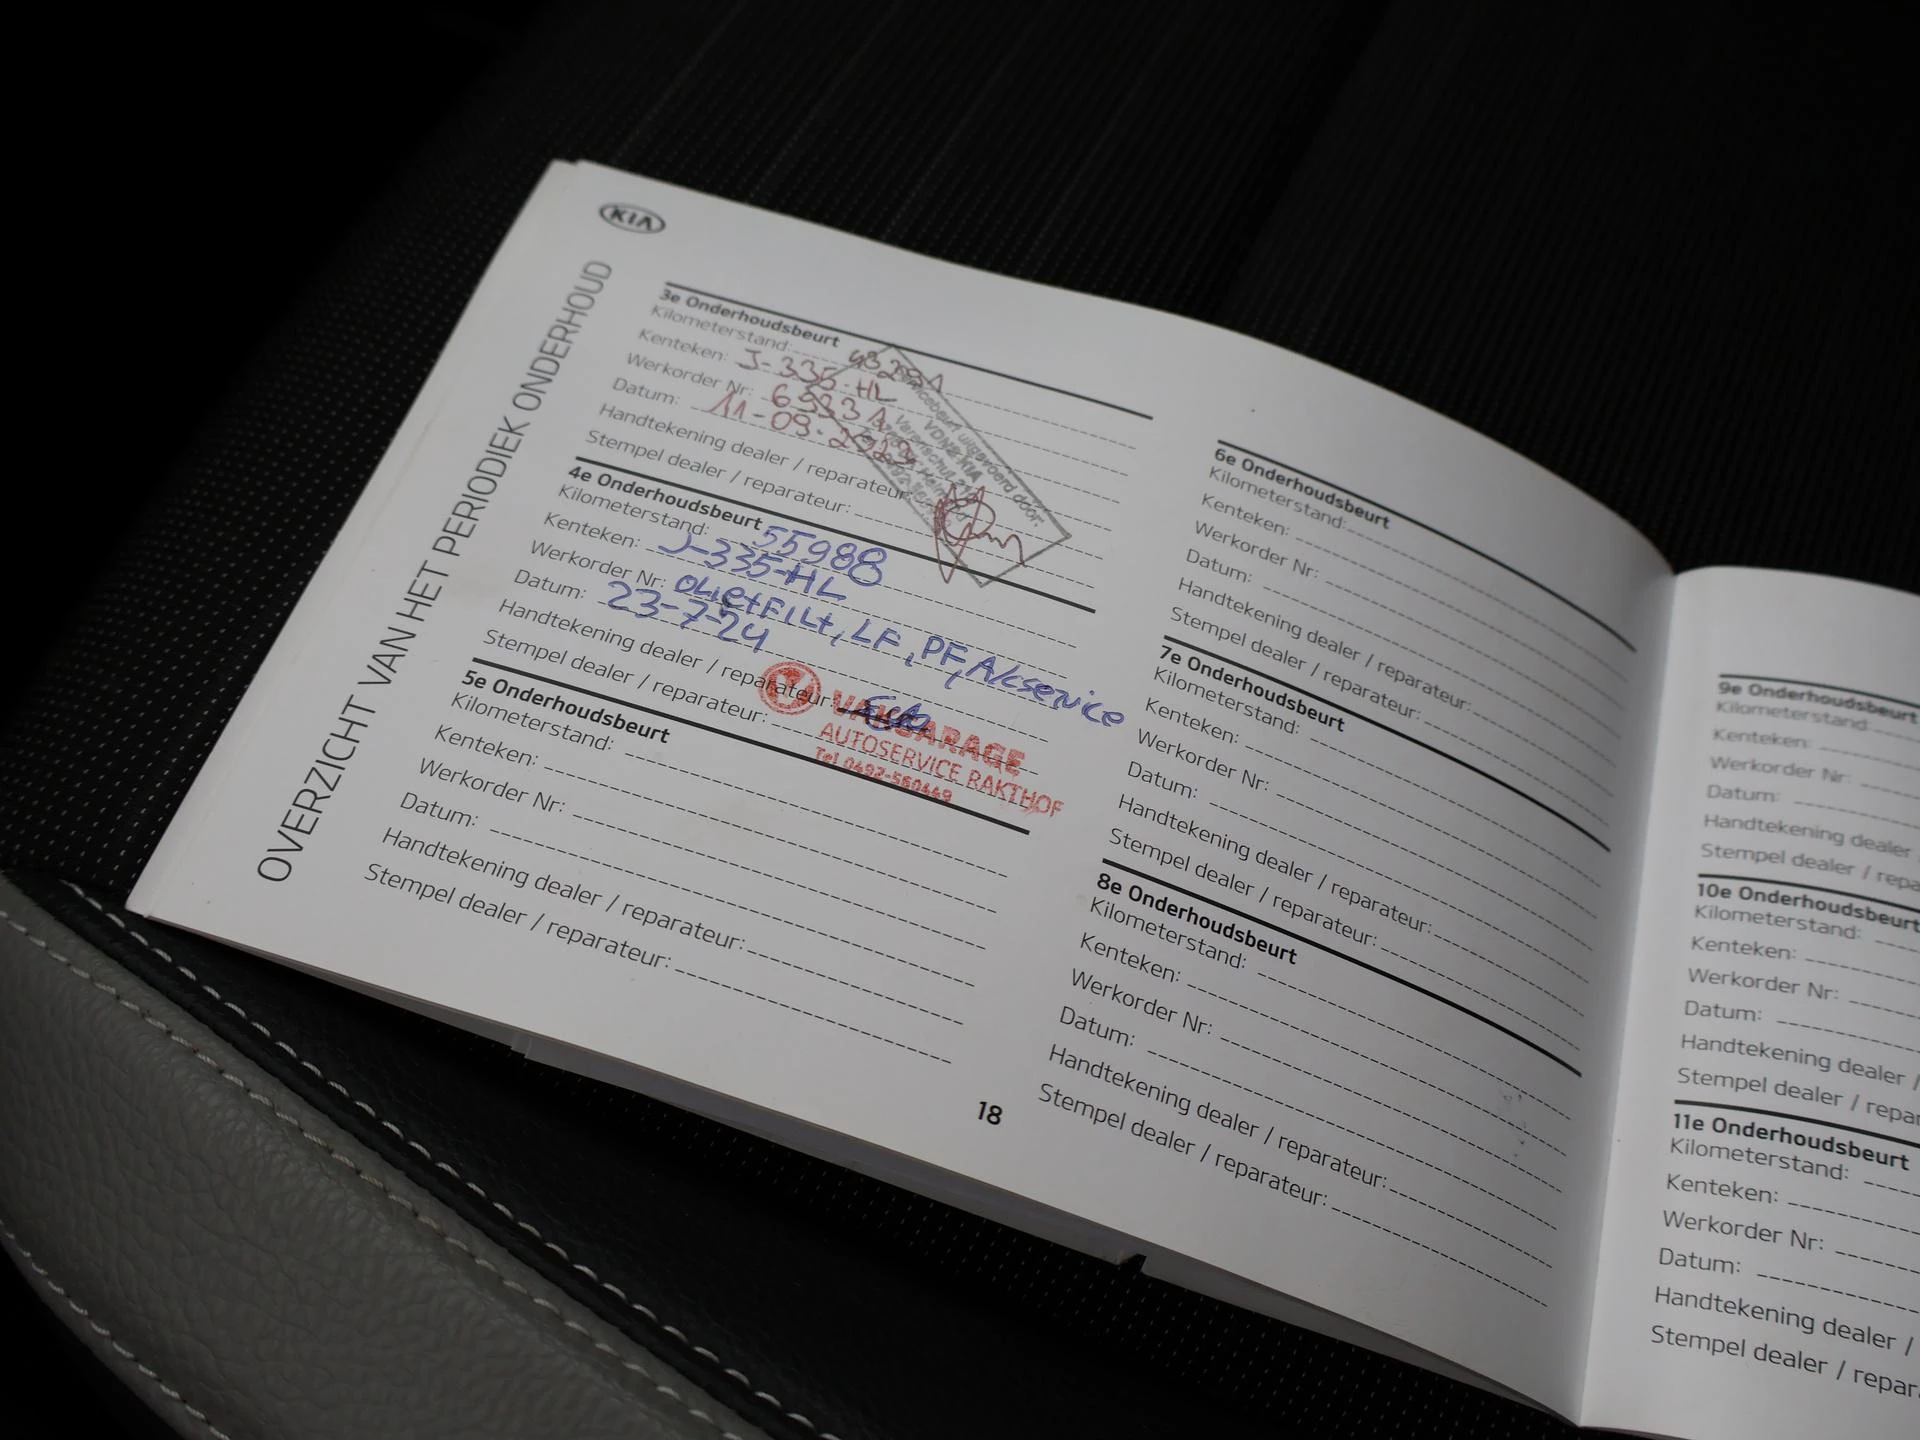 KIA
OVERZICHT VAN HET PERIODIEK ONDERHOUD
3e Onderhoudsbeurt
Kilometerstand:
Kenteken: J-335-HL
Werkorder Nr:
Datum: 11-09-
Handtekening dealer / reparateur:
Stempel dealer / reparateur:
Servicebeurt uitgevoerd door:
VDNS KIA
4e Onderhoudsbeurt
Kilometerstand: 55988
Kenteken: J-335-HL
Werkorder Nr: OLIE+FILt, LF, PF, A/cservice
Datum: 23-7-24
Handtekening dealer / reparateur:
Stempel dealer / reparateur:
VAKGARAGE
AUTOSERVICE RAKTHOF
Tel 0492-560449
5e Onderhoudsbeurt
Kilometerstand:
Kenteken:
Werkorder Nr:
Datum:
Handtekening dealer / reparateur:
Stempel dealer / reparateur:
6e Onderhoudsbeurt
Kilometerstand:
Kenteken:
Werkorder Nr:
Datum:
Handtekening dealer / reparateur:
Stempel dealer / reparateur:
7e Onderhoudsbeurt
Kilometerstand:
Kenteken:
Werkorder Nr:
Datum:
Handtekening dealer / reparateur:
Stempel dealer / reparateur:
8e Onderhoudsbeurt
Kilometerstand:
Kenteken:
Werkorder Nr:
Datum:
Handtekening dealer / reparateur:
Stempel dealer / reparateur:
18
9e Onderhoudsbeurt
Kilometerstand:
Kenteken:
Werkorder Nr:
Datum:
Handtekening dealer
Stempel dealer / repa
10e Onderhoudsbeurt
Kilometerstand:
Kenteken:
Werkorder Nr:
Datum:
Handtekening dealer /
Stempel dealer / repar
11e Onderhoudsbeurt
Kilometerstand:
Kenteken:
Werkorder Nr:
Datum:
Handtekening dealer /
Stempel dealer / repar